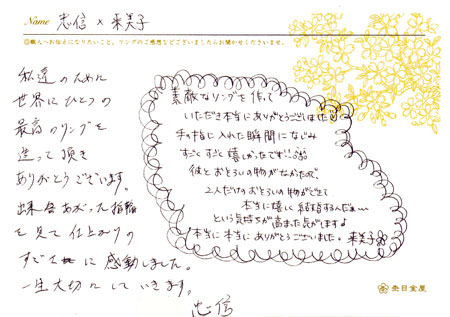 Name 忠信 × 来美子
◎職人へお伝えになりたいこと、リングのご感想などございましたらお聞かせくださいませ。
私達のために
世界にひとつの
最高のリングを
造って頂き
ありがとうございます。
出来あがった指輪
を見て仕上がりの
すごさに感動しました。
一生大切にしていきます。
忠信
素敵なリングを作って
いただき本当にありがとうございました
手の指に入れた瞬間になじみ
すごくすごく嬉しかったです!!
彼とおそろいの物がなかったので、
2人だけのおそろいの物ができて
本当に嬉しく結婚するんだぁ…
という気持ちが高まった気がします♪
本当に本当にありがとうございました。来美子
杢目金屋